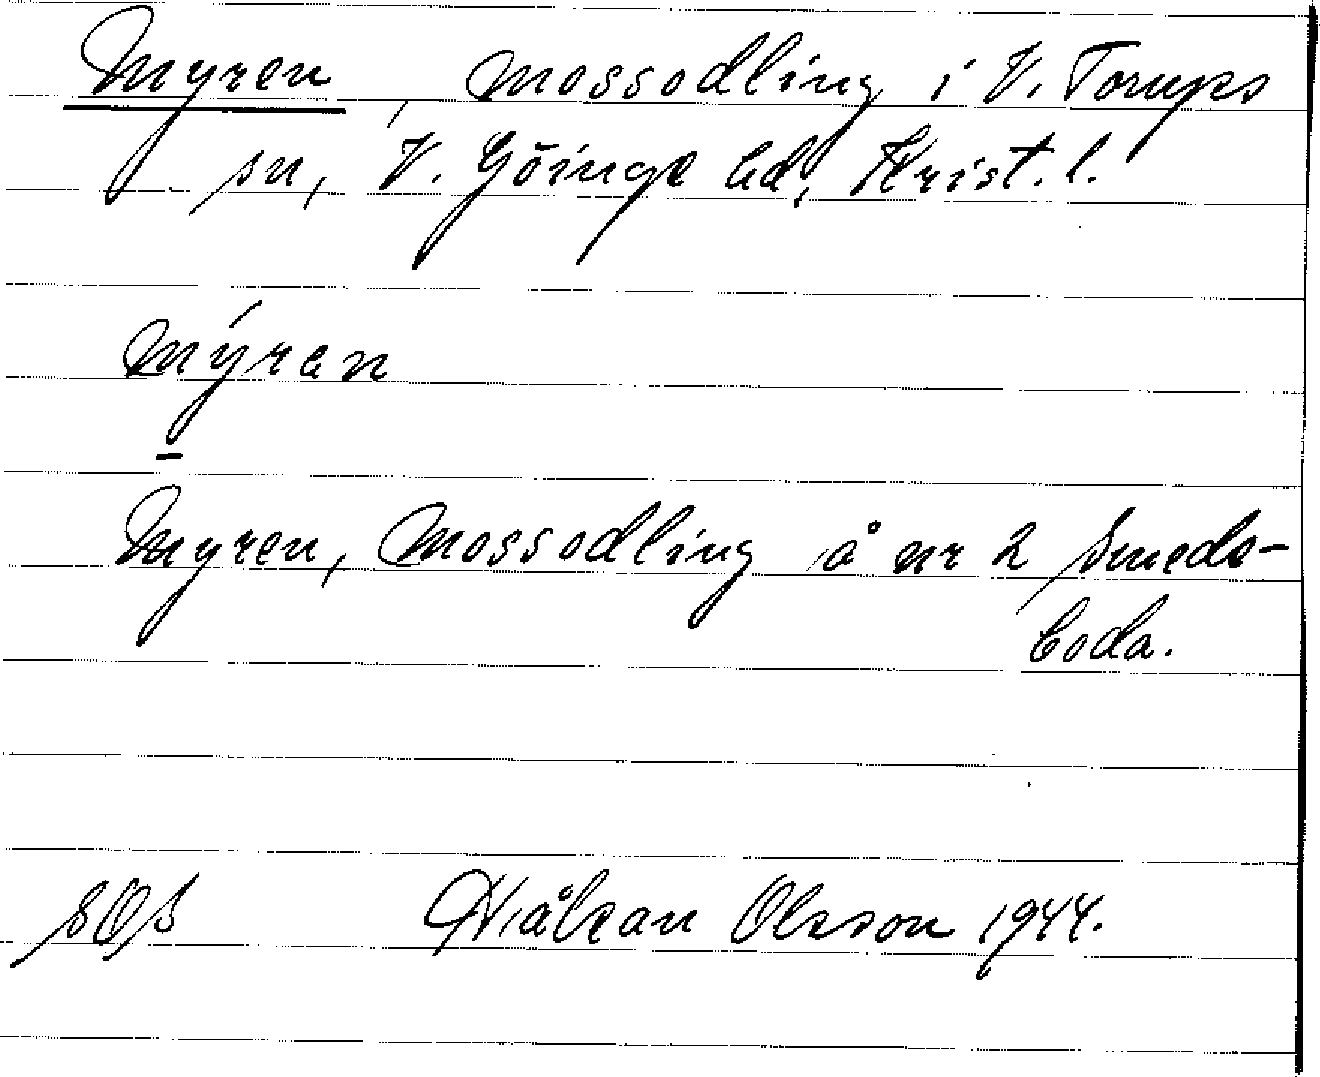 Myren, mossodling i V. Torups
sn, V. Göinge hd, Krist. l.
mýran
Myren, Mossodling å nr 2 Smeds-
boda.
SOS Håkan Olsson 1944.